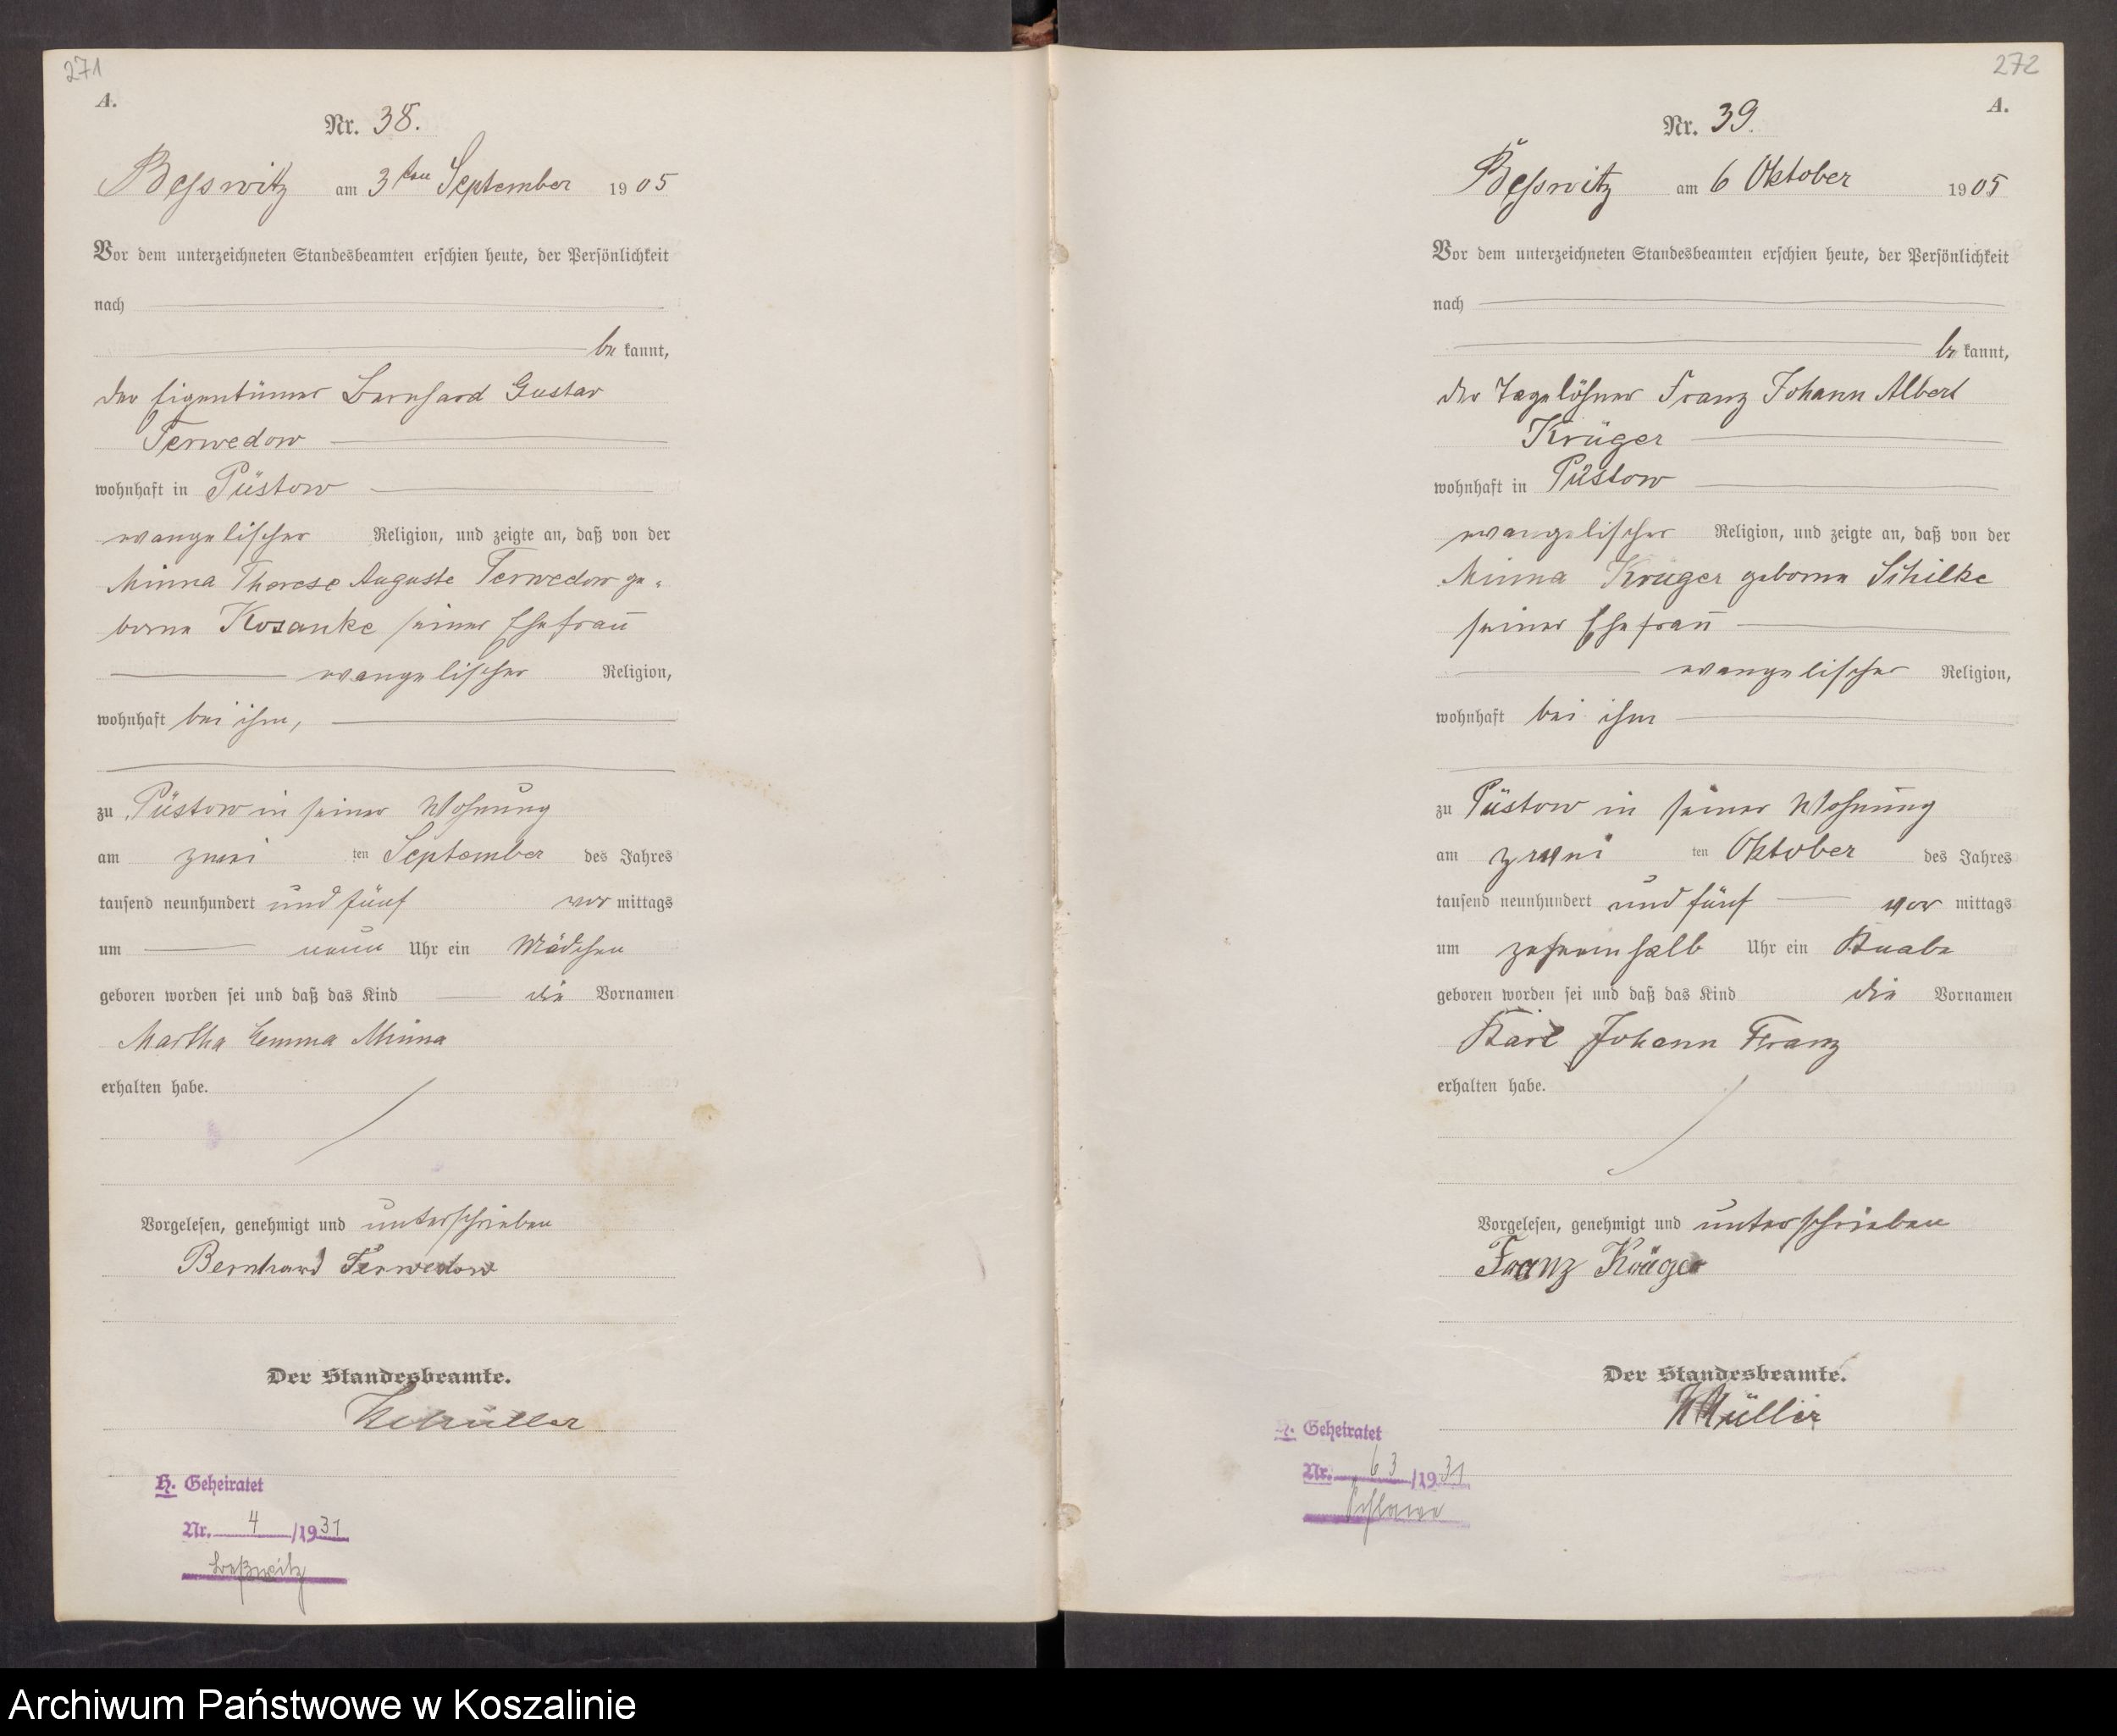 271
A.
Nr. 38.
Beßwitz am 3ten September 1905
Vor dem unterzeichneten Standesbeamten erschien heute, der Persönlichkeit
nach
be kannt,
der Eigentümer Bernhard Gustav
Ferwedow
wohnhaft in Püstow
evangelischer Religion, und zeigte an, daß von der
Minna Therese Auguste Ferwedow ge-
borne Kosanke seiner Ehefrau
evangelischer Religion,
wohnhaft bei ihm,
zu Püstow in seiner Wohnung
am zwei ten September des Jahres
tausend neunhundert und fünf vor mittags
um neun Uhr ein Mädchen
geboren worden sei und daß das Kind die Vornamen
Martha Emma Minna
erhalten habe.
Vorgelesen, genehmigt und unterschrieben
Bernhard Ferwedow
Der Standesbeamte.
H. Geheiratet
Nr. 4 /1931
Beßwitz
272
A.
Nr. 39.
Beßwitz am 6 Oktober 1905
Vor dem unterzeichneten Standesbeamten erschien heute, der Persönlichkeit
nach
be kannt,
der Tagelöhner Franz Johann Albert
Krüger
wohnhaft in Püstow
evangelischer Religion, und zeigte an, daß von der
Minna Krüger geborne Schilke
seiner Ehefrau
evangelischer Religion,
wohnhaft bei ihm
zu Püstow in seiner Wohnung
am zwei ten Oktober des Jahres
tausend neunhundert und fünf vor mittags
um zehneinhalb Uhr ein Knabe
geboren worden sei und daß das Kind die Vornamen
Karl Johann Franz
erhalten habe.
Vorgelesen, genehmigt und unterschrieben
Franz Krüger
Der Standesbeamte.
KMüller
H. Geheiratet
Nr. 63 /1931
Schlawe
Archiwum Państwowe w Koszalinie